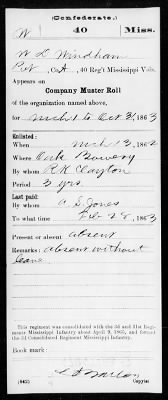 (Confederate.)
W 40 Miss.
W D Windham
Pvt, Co. A, 40 Reg't Mississippi Vols.
Appears on
Company Muster Roll
of the organization named above,
for Mch 1 to Oct 31, 1863
Enlisted:
When Mch 13, 1862
Where Bowery
By whom R K Clayton
Period 3 yrs.
Last paid:
By whom A S Jones
To what time Feb 28, 1863
Present or absent absent
Remarks: absent without
leave
This regiment was consolidated with the 3d and 31st Regi-
ments Mississippi Infantry about April 9, 1865, and formed
the 3d Consolidated Regiment Mississippi Infantry.
Book mark:
(642) Copyist.